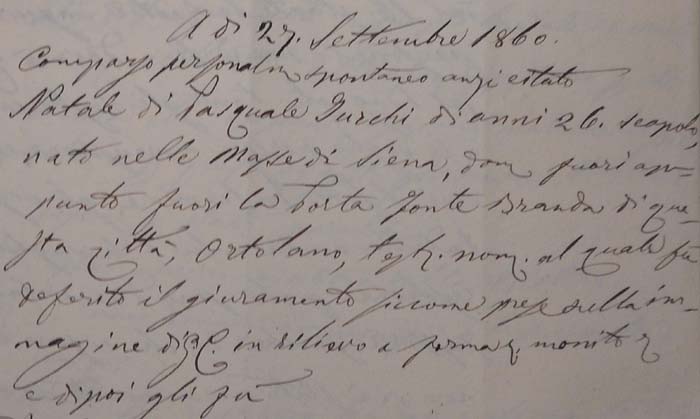 A dì 27. Settembre 1860.
Comparso personalm spontaneo anzi citato
Natale di Pasquale Turchi di anni 26. scapolo,
nato nelle Masse di Siena, dom fuori ap-
punto fuori la Porta Fonte Branda di que-
sta Città, Ortolano, test. nom. al quale fu
deferito il giuramento siccome prese sulla im-
magine di G. C. in rilievo a forma monito
e dipoi gli fu